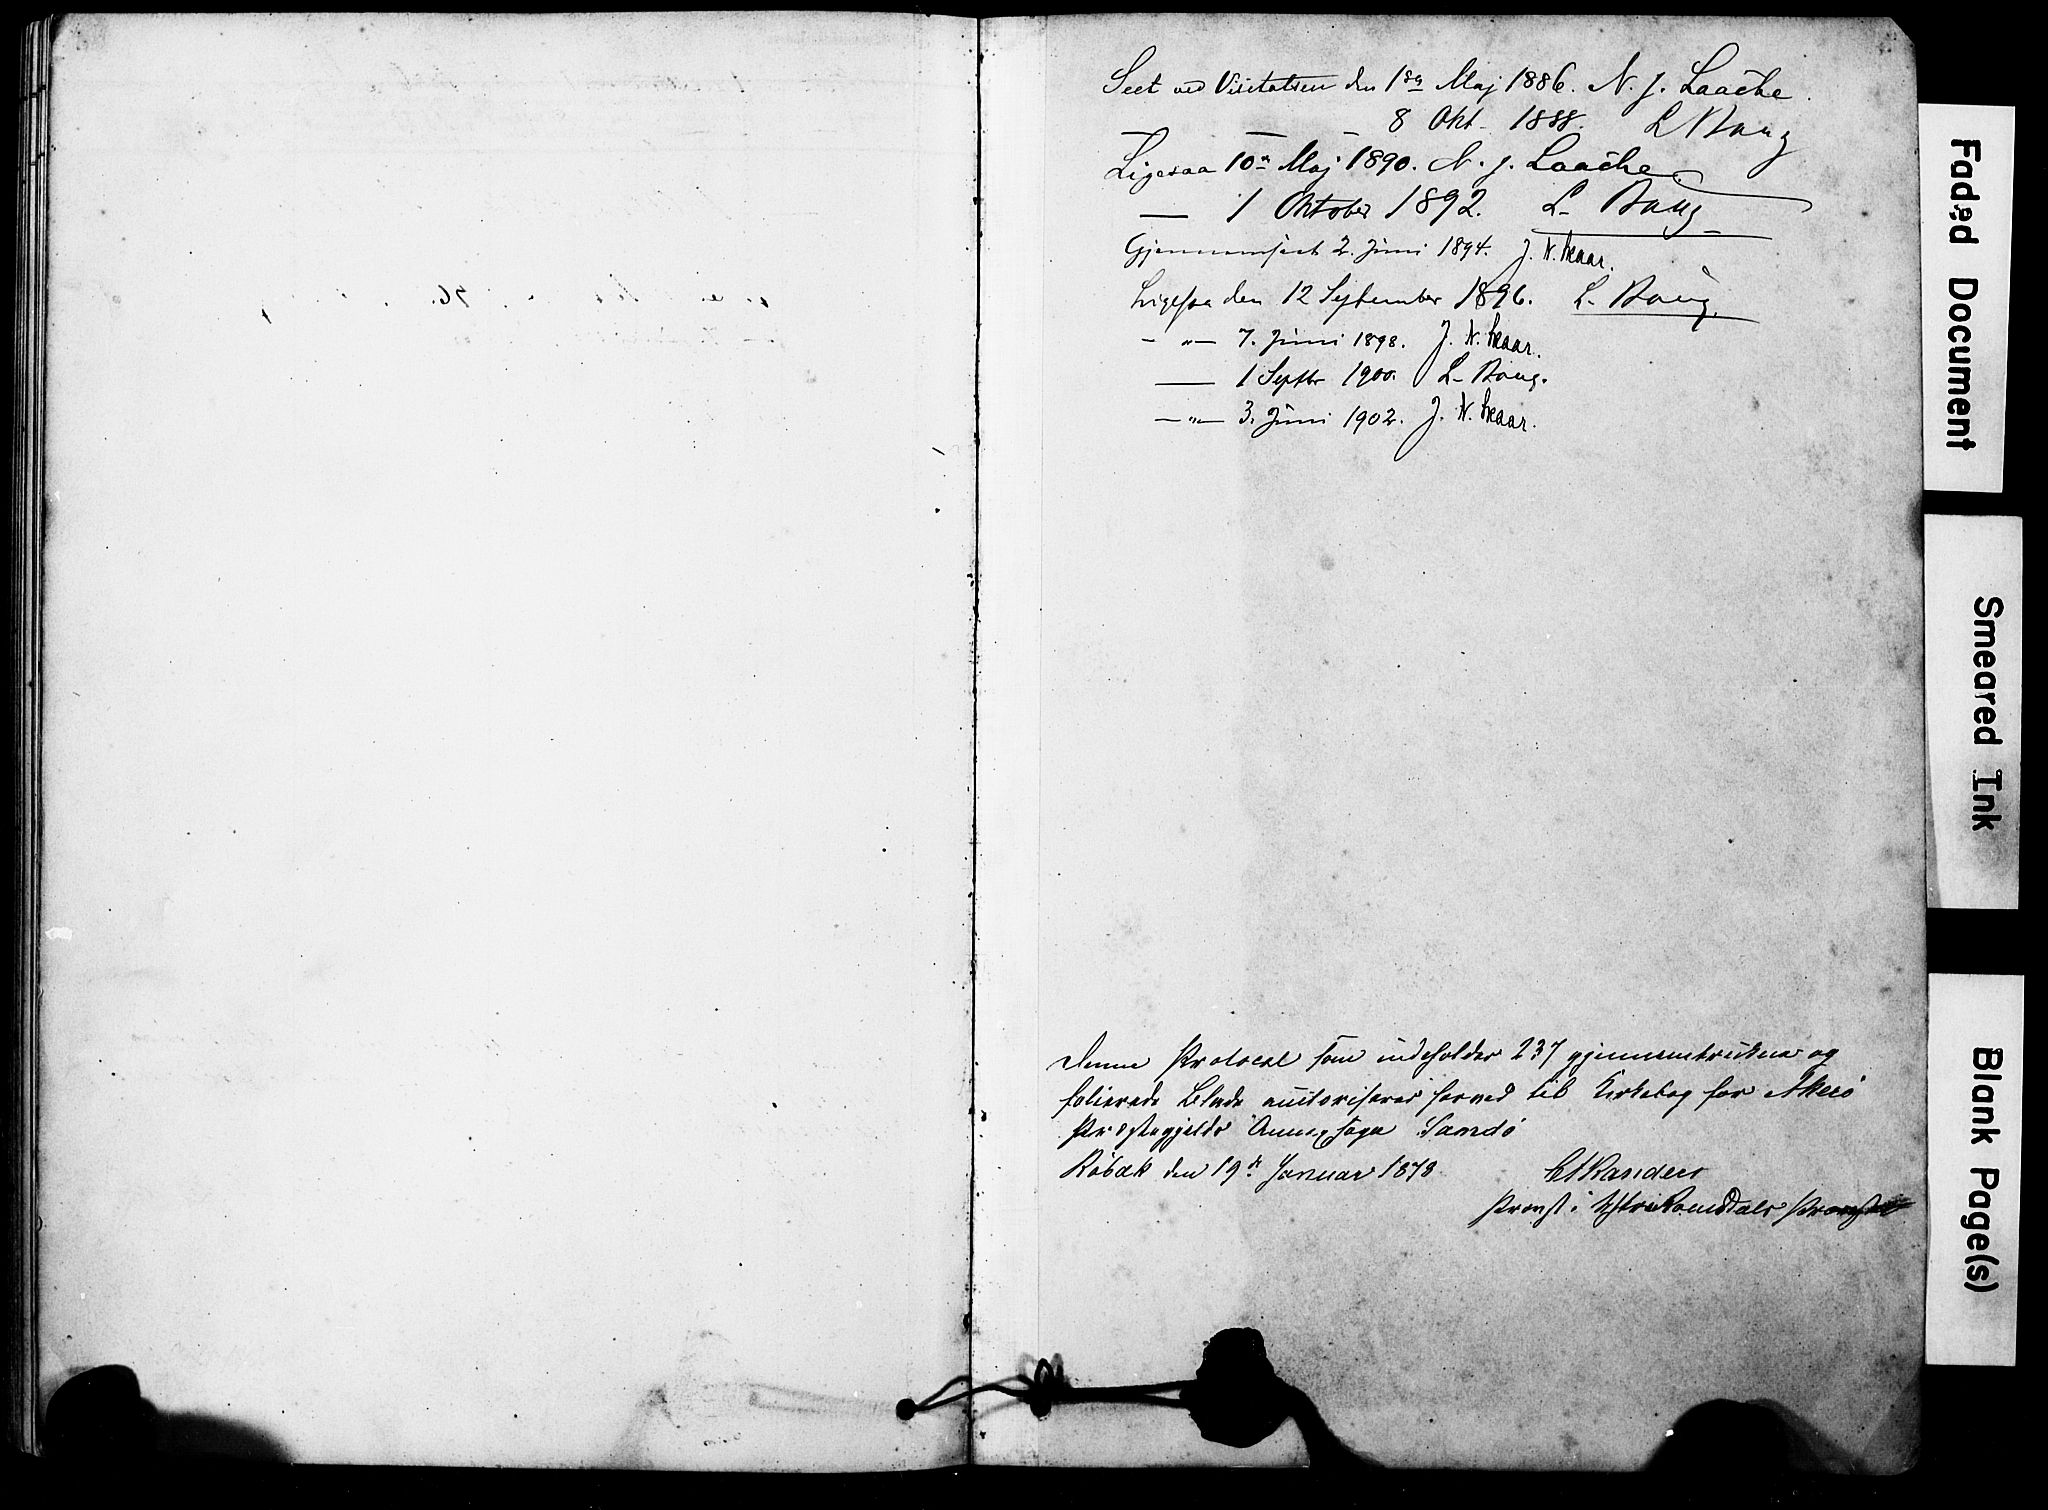 Seet ved Visitatsen den 1ste Maj 1886. N. J. Laache.
— — — 8 Okt. 1888. L Bang
Ligesaa 10de Maj 1890. N. J. Laache
— 1 Oktober 1892. L. Bang
Gjennemseet 2. Juni 1894. J. N. Skaar.
Ligesaa den 12 September 1896. L. Bang.
— „ — 7. Juni 1898. J. N. Skaar.
— 1 Septbr 1900. L. Bang.
— „ — 3. Juni 1902. J. N. Skaar.
Denne Protocol som indeholder 237 gjennemtrukne og
folierede Blade autoriseres herved til Kirkebog for Akerø
Præstegjelds Annexsogn Sandø
Røbæk den 19de Januar 1878
Randers
Provst i Ytre Romsdals Provsti
Faded Document
Smeared Ink
Blank Page(s)